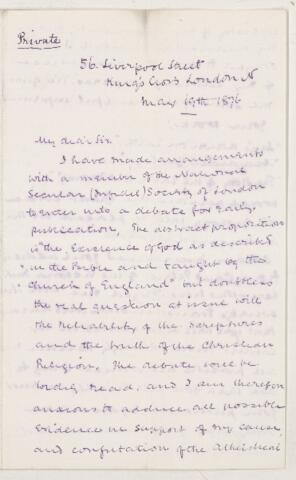 Private
56. Liverpool Street
King's Cross London N
May 19th 1876
My dear Sir.
I have made arrangements
with a member of the National
Secular (Infidel) Society of London
to enter into a debate for early
publication, The abstract proposition
is "the Existence of God as described
" in the Bible and taught by the
" Church of England" but doubtless
the real question at issue will
the reliability of the Scriptures
and the truth of the Christian
Religion, The debate will be
widely read, and I am therefore
anxious to adduce all possible
Evidence in support of my cause
and confutation of the Atheistical